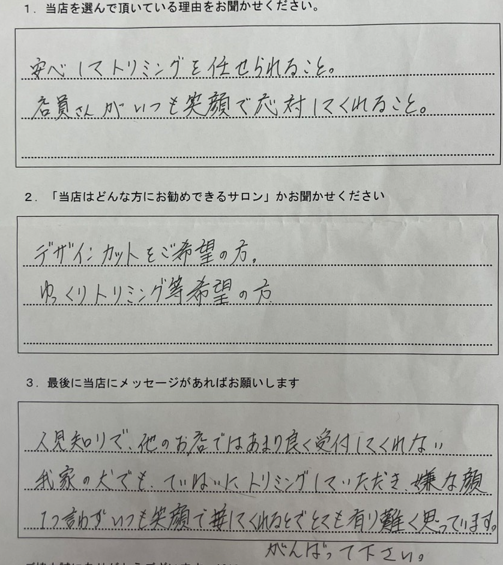 1．当店を選んで頂いている理由をお聞かせください。
安心してトリミングを任せられること。
店員さんがいつも笑顔で応対してくれること。
2．「当店はどんな方にお勧めできるサロン」かお聞かせください
デザインカットをご希望の方。
ゆっくりトリミング等希望の方
3．最後に当店にメッセージがあればお願いします
人見知りで、他のお店ではあまり良く受付してくれない
我家の犬でも、ていねいにトリミングしていただき、嫌な顔
1つ言わずいつも笑顔で接してくれるのでとても有り難く思っています。
がんばって下さい。